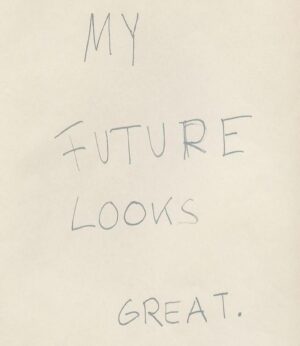 MY
FUTURE
LOOKS
GREAT.